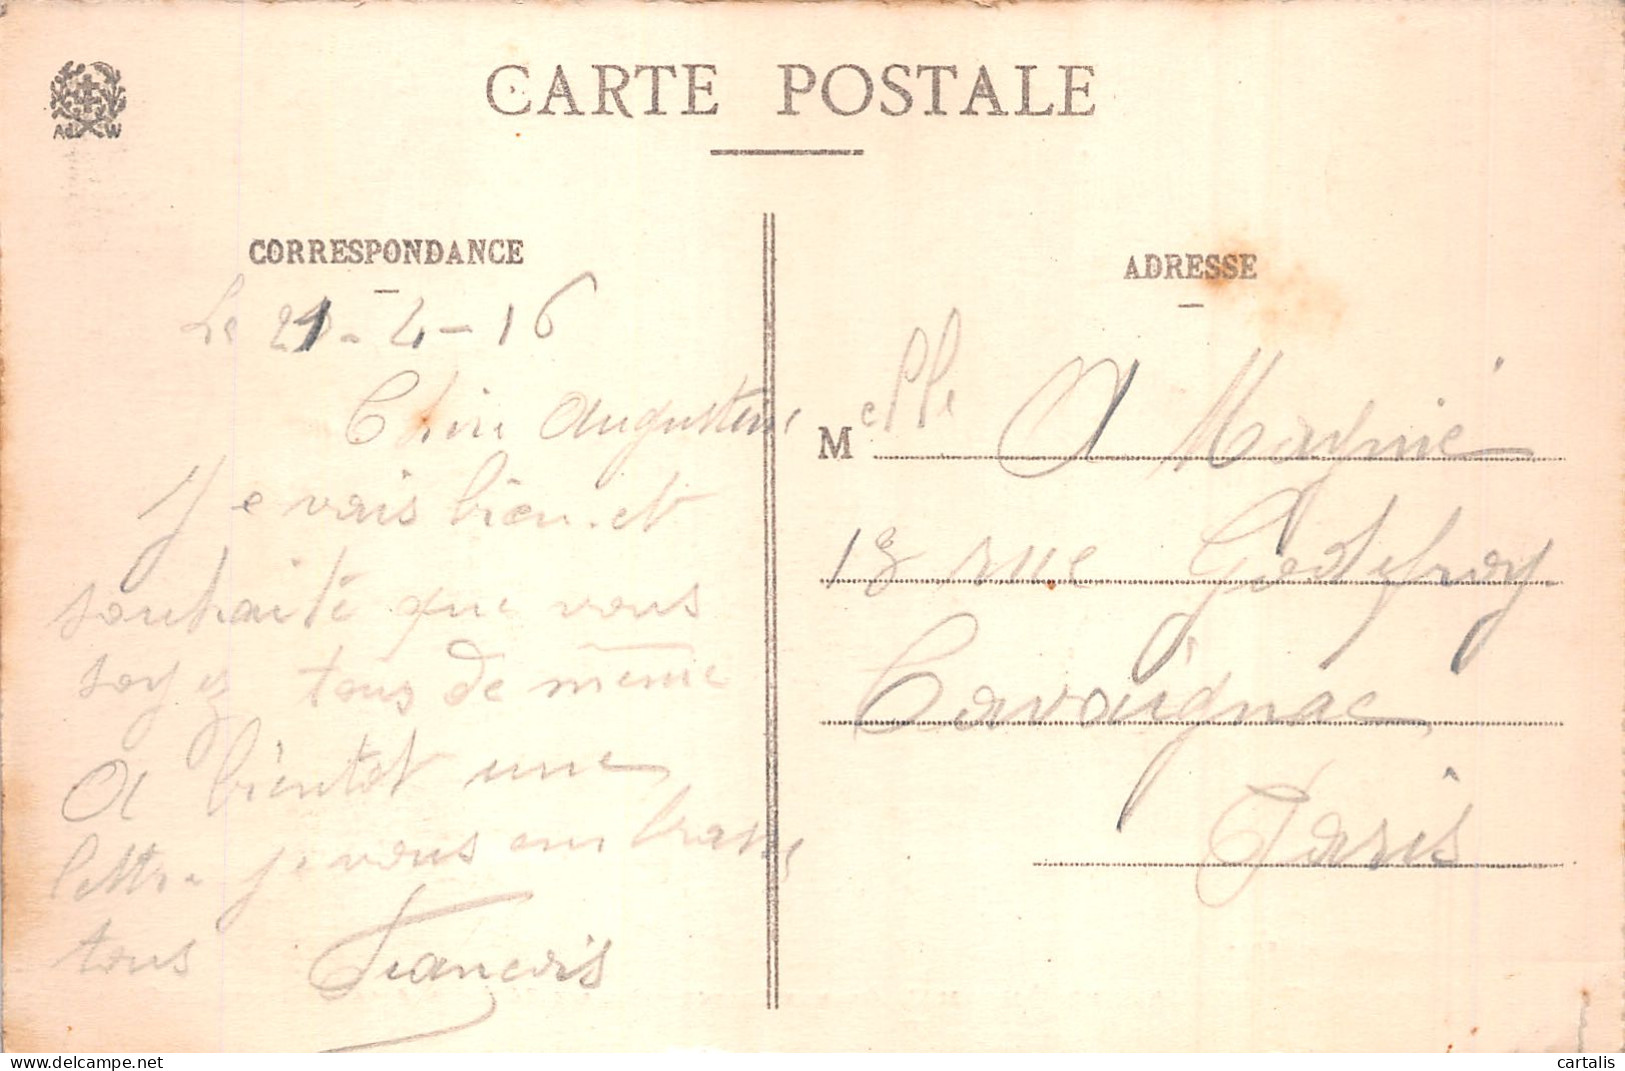 CARTE POSTALE
CORRESPONDANCE
Le 21-4-16
Chère Augustine
Je vais bien et
souhaite que vous
soyez tous de même
A bientôt une
lettre je vous embrasse
tous François
ADRESSE
Melle A Magnié
13 rue Godefroy
Cavaignac
Paris
A W
cartalis